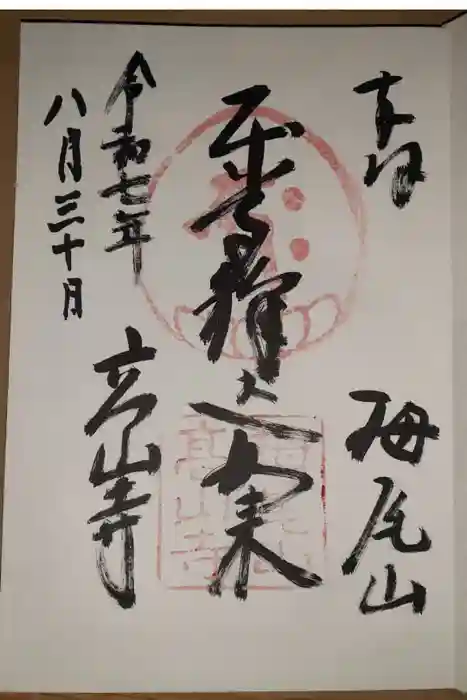 奉拝
栂尾山
釋迦如来
高山寺
令和七年
八月三十日
高山寺